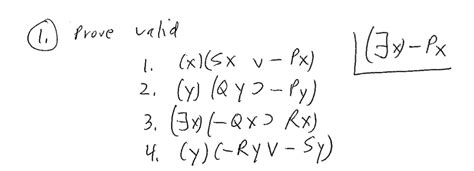 1. Prove valid
1. (x)(Sx v - Px)
2. (y) (Qy ⊃ - Py)
3. (∃x)(-Qx ⊃ Rx)
4. (y) (-Ry v - Sy)
(∃x) - Px